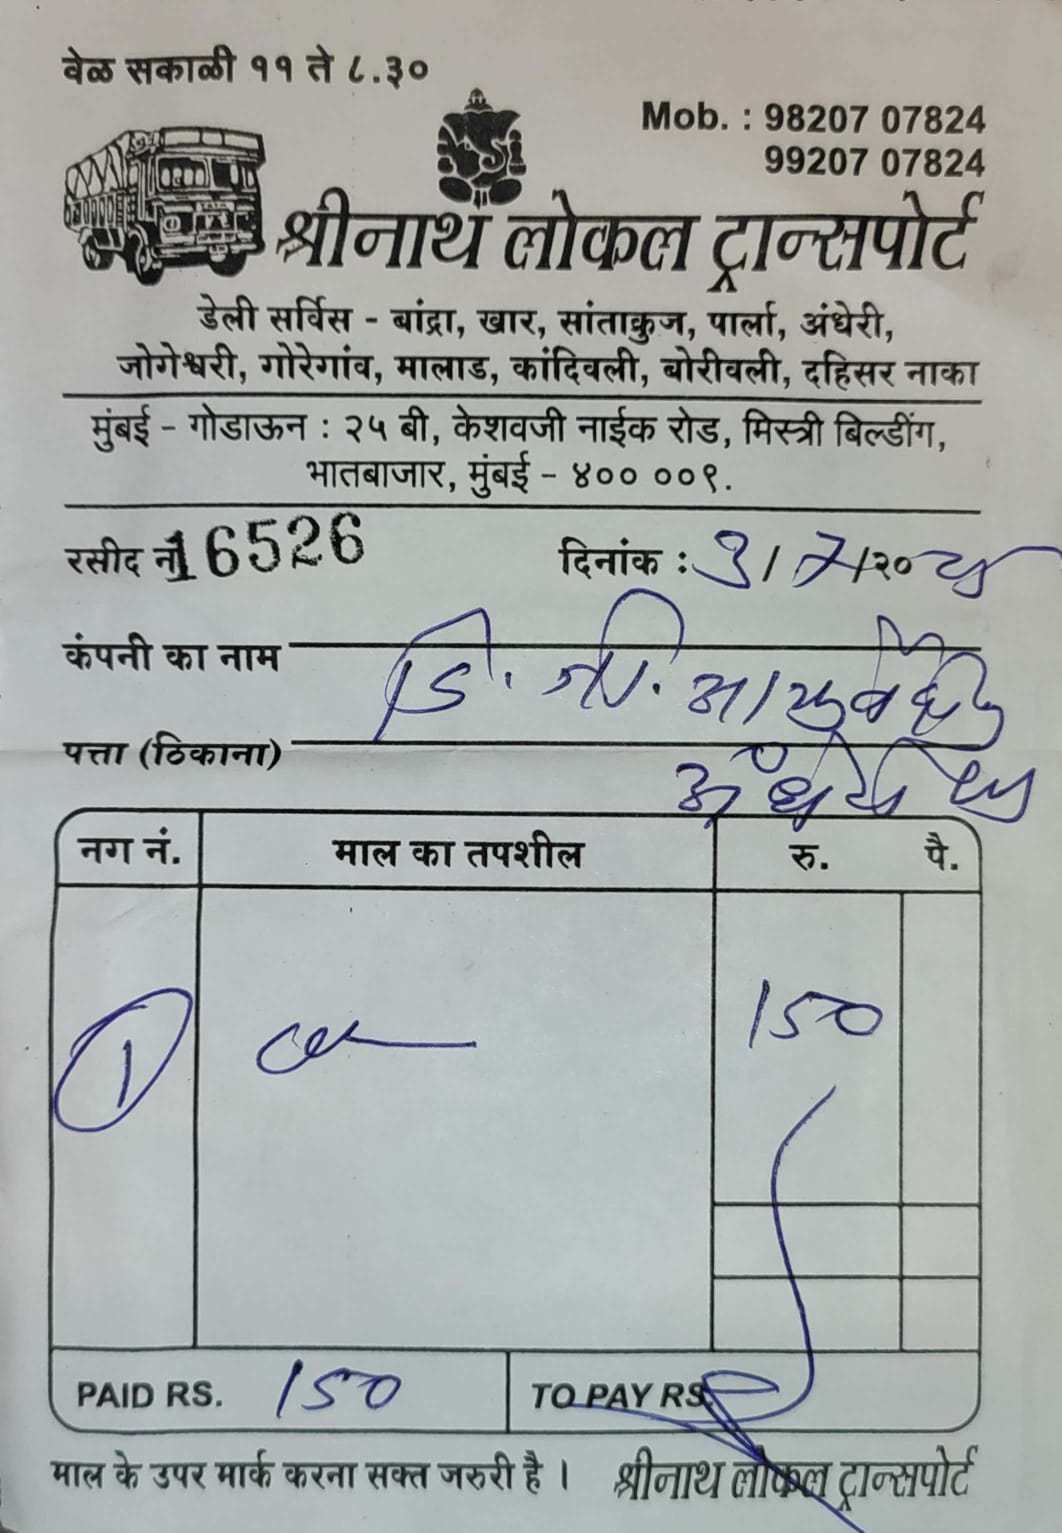 वेळ सकाळी ११ ते ८.३०
Mob. : 98207 07824
99207 07824
श्रीनाथ लोकल ट्रान्सपोर्ट
डेली सर्विस - बांद्रा, खार, सांताक्रुज, पार्ला, अंधेरी,
जोगेश्वरी, गोरेगांव, मालाड, कांदिवली, बोरीवली, दहिसर नाका
मुंबई - गोडाऊन : २५ बी, केशवजी नाईक रोड, मिस्त्री बिल्डींग,
भातबाजार, मुंबई - ४०० ००९.
रसीद नं 16526 दिनांक : 3/7/२०२५
कंपनी का नाम डि. जी.
पत्ता (ठिकाना)
नग नं. माल का तपशील रु. पै.
1 150
PAID RS. 150 TO PAY RS.
माल के उपर मार्क करना सक्त जरुरी है । श्रीनाथ लोकल ट्रान्सपोर्ट